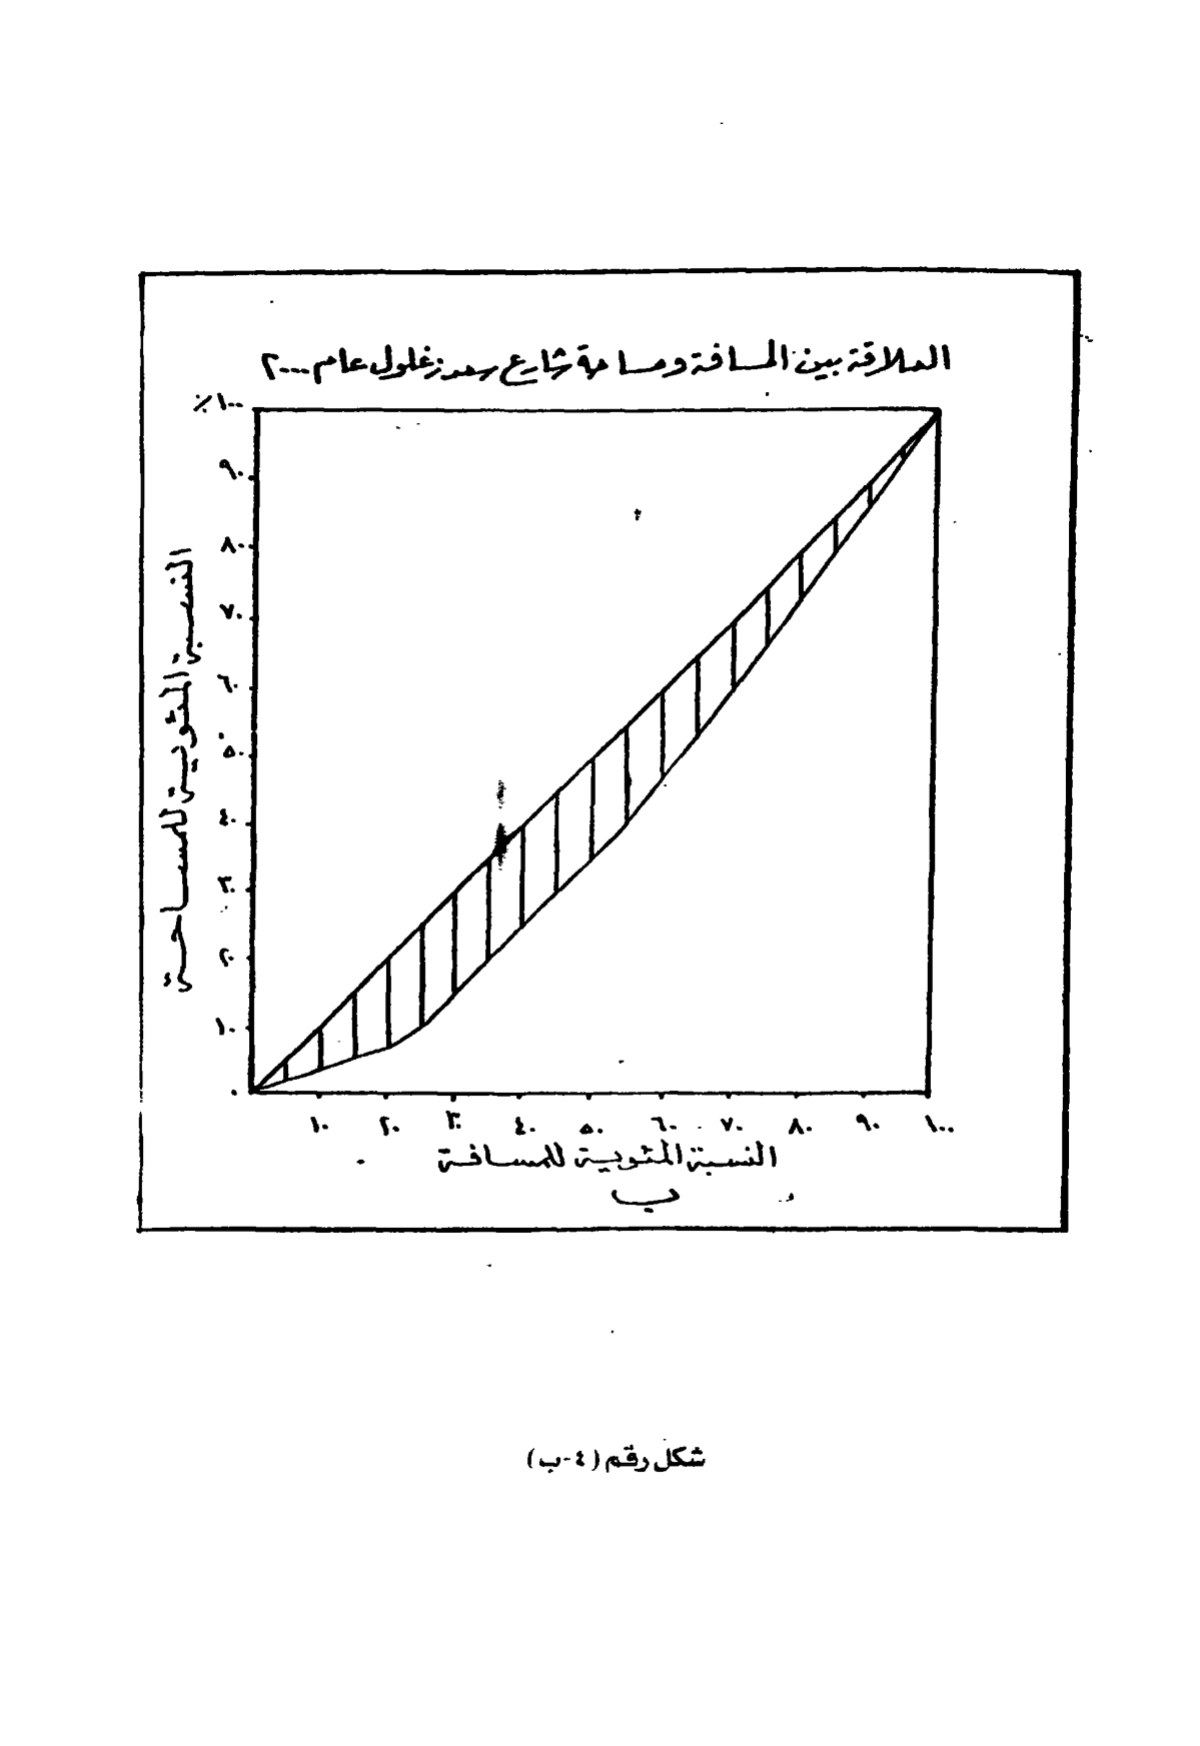 العلاقة بين المسافة ومساحة شارع سعد زغلول عام ٢٠٠٠
٪١٠٠
٩٠
٨٠
٧٠
٦٠
٥٠
٤٠
٣٠
٢٠
١٠
٠
النسبة المئوية للمساحة
١٠ ٢٠ ٣٠ ٤٠ ٥٠ ٦٠ ٧٠ ٨٠ ٩٠ ١٠٠
النسبة المئوية للمسافة
ب
شكل رقم (٤-ب)